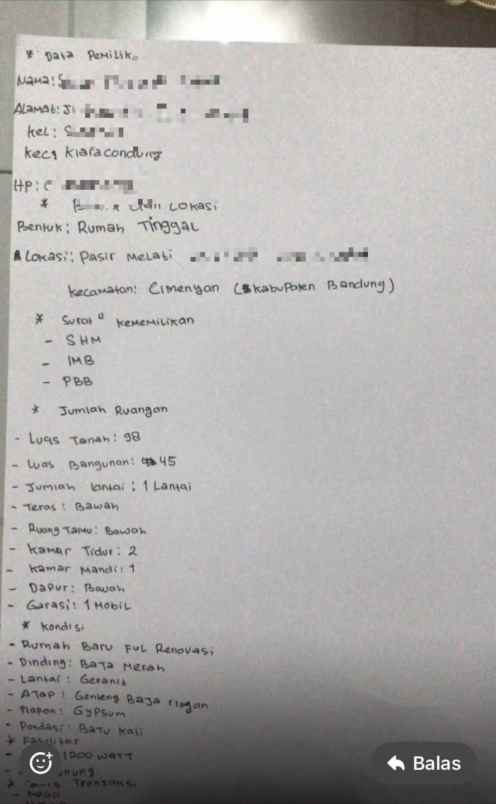 * Data Pemilik
Nama:
Alamat: Jl
Kel:
Kec: Kiaracondong
HP:
* LOKasi
Bentuk: Rumah Tinggal
Lokasi: Pasir Melati
Kecamatan: Cimenyan (Kabupaten Bandung)
* Surat" Kememilikan
- SHM
- IMB
- PBB
* Jumlah Ruangan
- Luas Tanah: 98
- Luas Bangunan: 45
- Jumlah lantai: 1 Lantai
- Teras: Bawah
- Ruang Tamu: Bawah
- Kamar Tidur: 2
- Kamar Mandi: 1
- Dapur: Bawah
- Garasi: 1 Mobil
* Kondisi
- Rumah Baru Ful Renovasi
- Dinding: Bata Merah
- Lantai: Geranit
- Atap: Genteng Baja ringan
- Plapon: Gypsum
- Pondasi: Batu Kali
* Fasilitas
- 1200 WATT
Transaksi
Balas